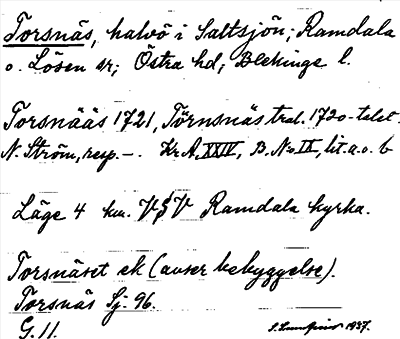 Torsnäs, halvö i Saltsjön; Ramdala
o. Lösen sr; Östra hd, Blekinge l.
Torsnääs 1721, Törnsnäs trol. 1720-talet.
N. Ström, resp. -. Kr. A. XXIV, B. No IX, lit. a. o. b
Läge 4 km. VSV Ramdala kyrka.
Torsnäset ek (avser bebyggelse).
Torsnäs Sj. 96.
G. 11.
1937.